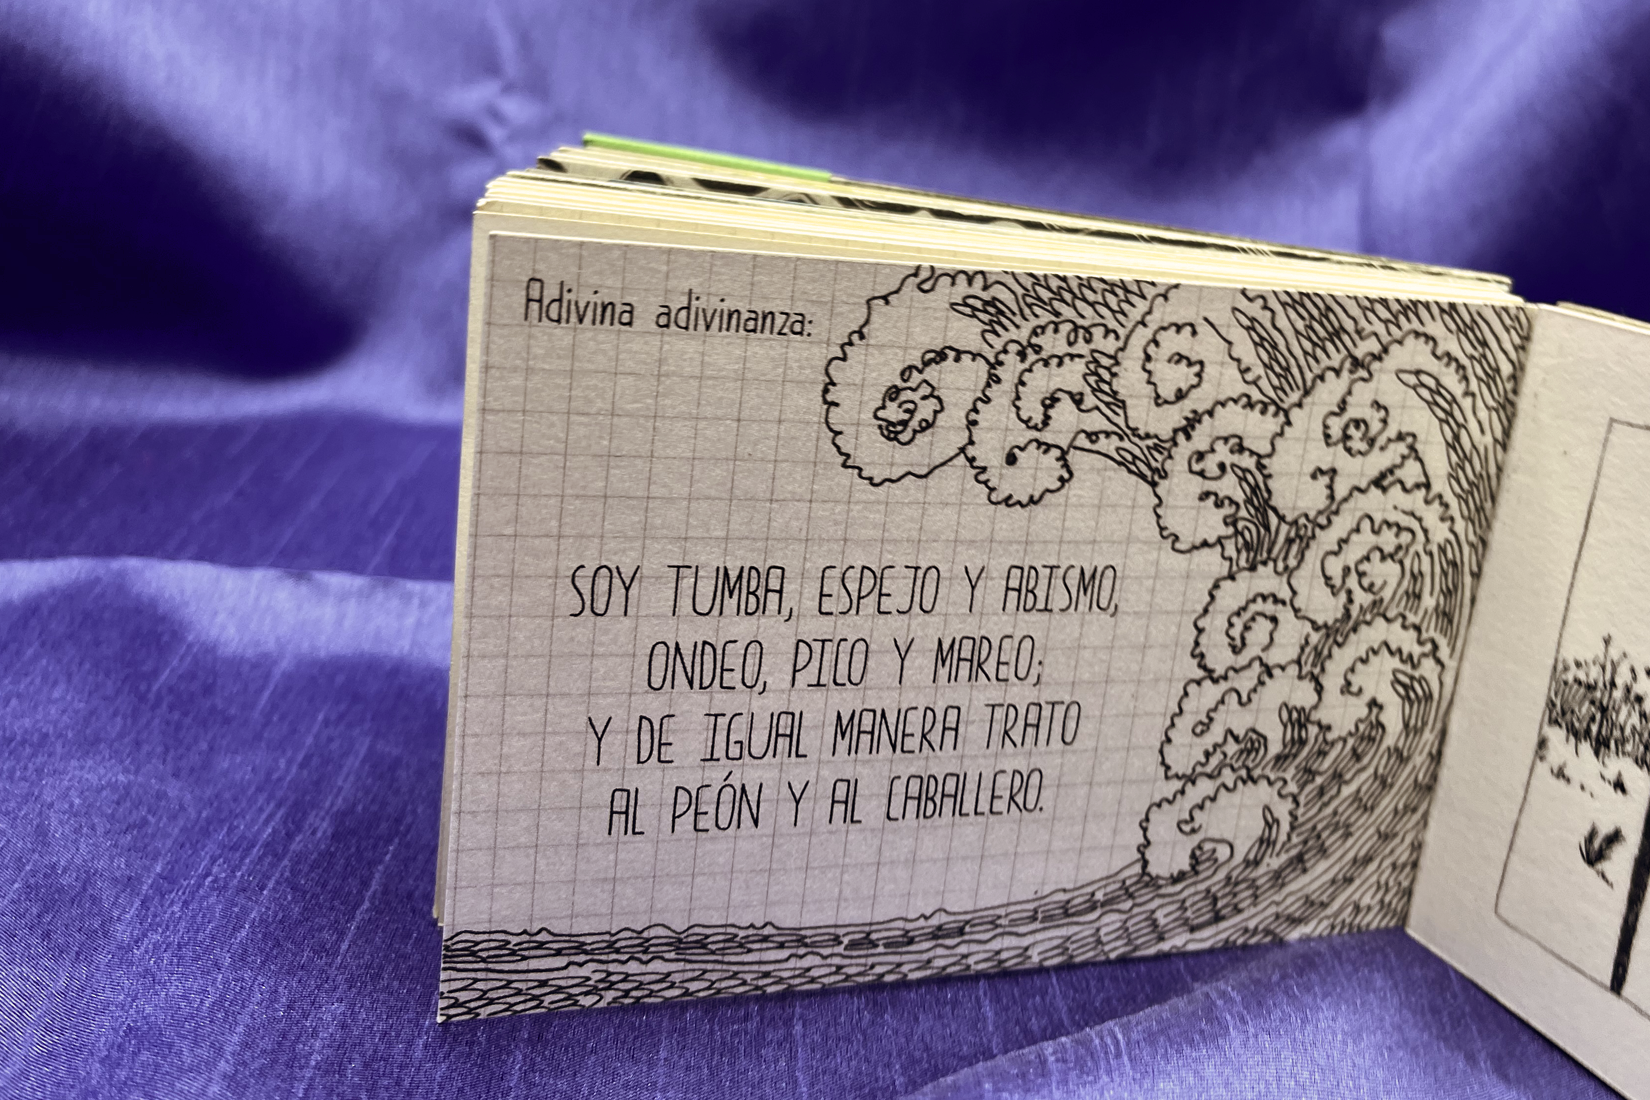 Adivina adivinanza:
SOY TUMBA, ESPEJO Y ABISMO,
ONDEO, PICO Y MAREO;
Y DE IGUAL MANERA TRATO
AL PEÓN Y AL CABALLERO.